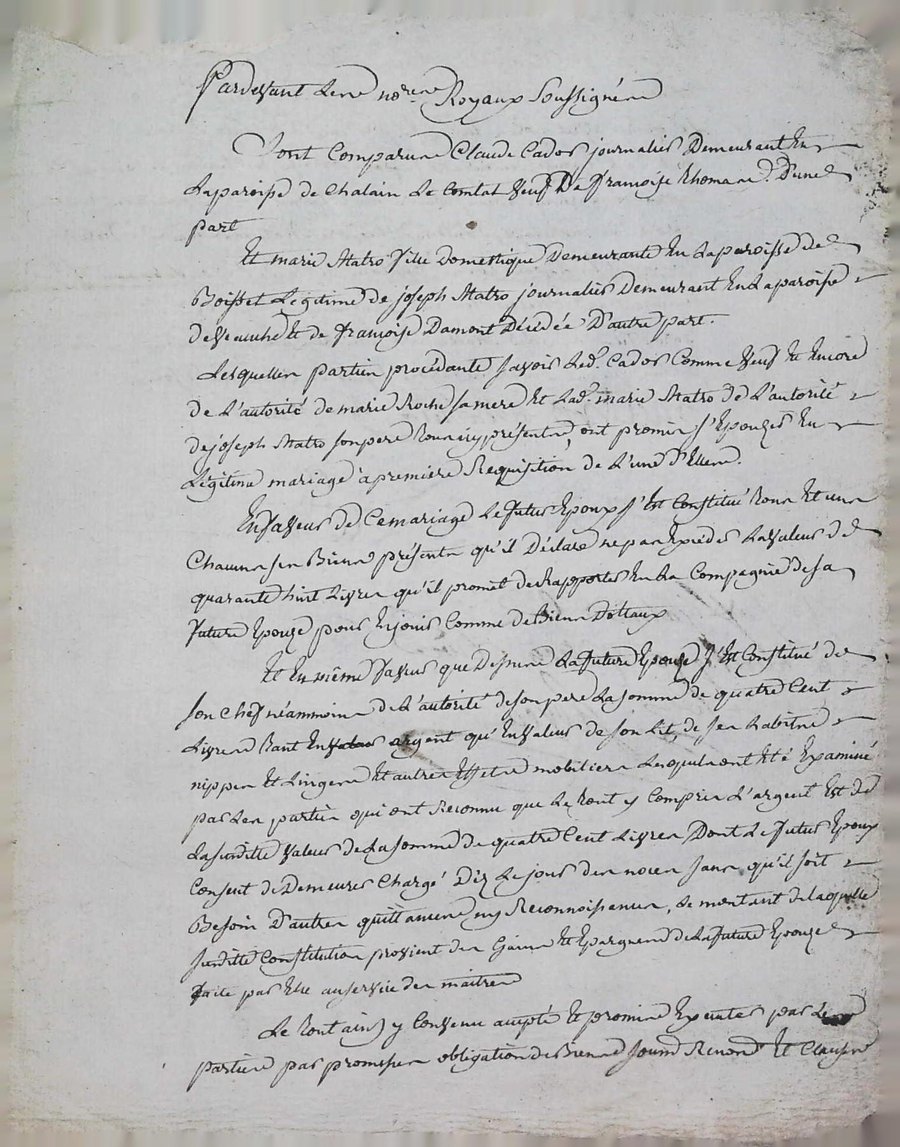 Pardevant Les no.res Royaux Soussignés
Sont Comparus Claude Cados journalier Demeurant En
Laparoisse de Chalain Le Comtal Veuf De françoise thomas d'une
part
Et marie Matro fille domestique Demeurante En Laparoisse de
Boisset Légitime de joseph Matro journalier Demeurant En Laparoisse
de Veauche Et de françoise Damont Décédée D'autre part.
Lesquelles parties procédantes Savoir Led. Cados Comme Veuf Et Encore
de L'autorité de marie Roche Sa mere Et Lad. marie Matro de L'autorité
de joseph Matro Son pere tous icy présents, ont promis S'Epouzer En
Légitime mariage à premiere Requisition de L'une d'Elles.
En faveur de Ce mariage Le futur Epoux S'Est Constitué tous Et uns
Chacuns ses Biens présents qu'il Déclare ne pas Excéder La Valeur de
quarante huit Livres qu'il promet de Rapporter En La Compagnie de sa
future Epouze pour En jouir Comme de Biens Dottaux
Et En même faveur que Dessus La future Epouze S'Est Constitué de
Son Chef néammoins de L'autorité de son pere La somme de quatre Cent
Livres tant En argent qu'En Valeur de Son Lit, de ses habits
nippes Et Linges Et autres Effets mobiliers Lesquels ont Eté Examiné
par Les parties qui ont Reconnu que Le tout y Compris L'argent Est de
La susditte Valeur de La somme de quatre Cent Livres Dont Le futur Epoux
Consent de Demeurer Chargé Dez Le jour des noces Sans qu'il soit
Besoin D'autres quittances ny Reconnoissances, Le montant de laquelle
Susditte Constitution provient des Gains Et Epargnes de La future Epouze
faits par Elle au service des maitres
Le tout ainsy Convenu accepté Et promis Executer par Les
parties par promesses obligation de Biens Soums Renons Et Clauses